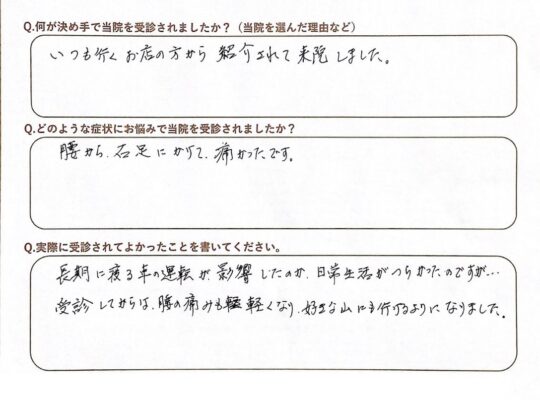 Q.何が決め手で当院を受診されましたか？（当院を選んだ理由など）
いつも行くお店の方から紹介されて来院しました。
Q.どのような症状にお悩みで当院を受診されましたか？
腰から、右足にかけて、痛かったです。
Q.実際に受診されてよかったことを書いてください。
長期に渡る車の運転が影響したのか、日常生活がつらかったのですが…
受診してからは、腰の痛みも軽くなり、好きな山にも行けるようになりました。